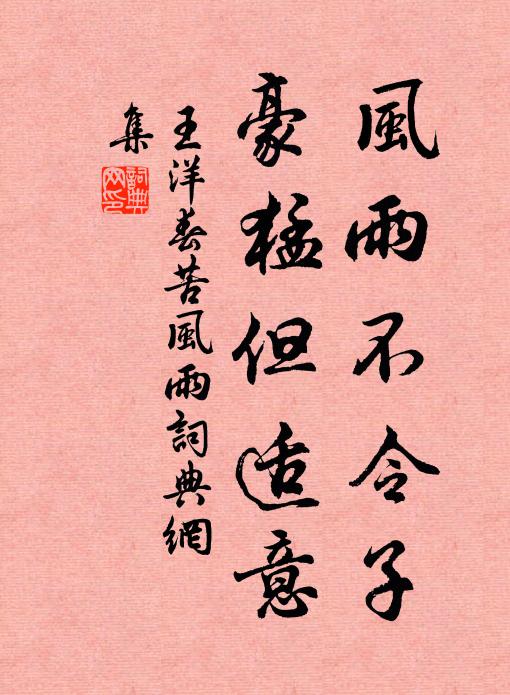 風雨不令子
豪猛但适意
王洋春苦風雨詞典網
集
詞典
网印